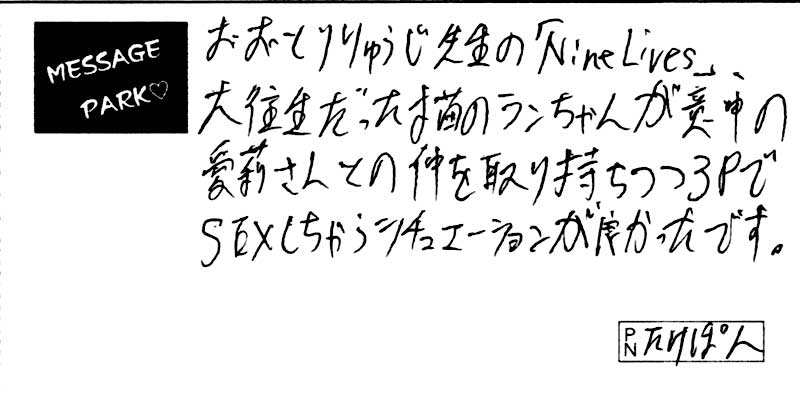 MESSAGE
PARK♡
おおとりりゅうじ先生の「Nine Lives」、
大往生だった猫のランちゃんが意中の
愛莉さんとの仲を取り持ちつつ3Pで
SEXしちゃうシチュエーションが良かったです。
PN たけぽん